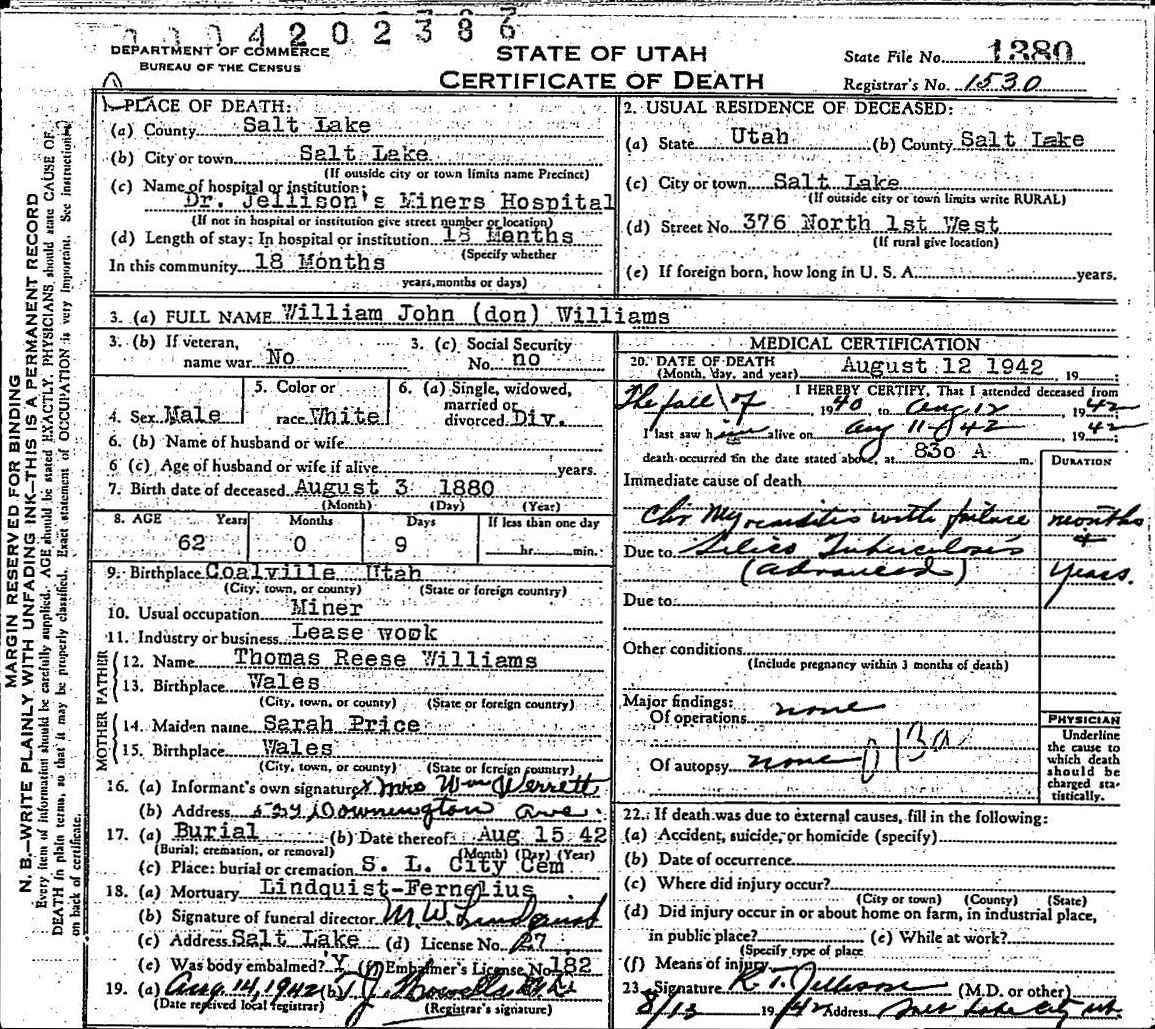 004202386
DEPARTMENT OF COMMERCE
BUREAU OF THE CENSUS
STATE OF UTAH
CERTIFICATE OF DEATH
State File No. 1380
Registrar's No. 1530
MARGIN RESERVED FOR BINDING
N. B.—WRITE PLAINLY WITH UNFADING INK—THIS IS A PERMANENT RECORD
Every item of information should be carefully supplied. AGE should be stated EXACTLY. PHYSICIANS should state CAUSE OF
DEATH in plain terms, so that it may be properly classified. Exact statement of OCCUPATION is very important. See instructions
on back of certificate.
1. PLACE OF DEATH:
(a) County Salt Lake
(b) City or town Salt Lake
(If outside city or town limits name Precinct)
(c) Name of hospital or institution:
Dr. Jellison's Miners Hospital
(If not in hospital or institution give street number or location)
(d) Length of stay: In hospital or institution 18 Months
(Specify whether
In this community 18 Months
years, months or days)
2. USUAL RESIDENCE OF DECEASED:
(a) State Utah (b) County Salt Lake
(c) City or town Salt Lake
(If outside city or town limits write RURAL)
(d) Street No. 376 North 1st West
(If rural give location)
(e) If foreign born, how long in U. S. A. years.
3. (a) FULL NAME William John (don) Williams
3. (b) If veteran,
name war No
3. (c) Social Security
No. no
4. Sex Male
5. Color or
race White
6. (a) Single, widowed,
married or
divorced Div.
6. (b) Name of husband or wife
6 (c) Age of husband or wife if alive years.
7. Birth date of deceased August 3 1880
(Month) (Day) (Year)
8. AGE Years Months Days If less than one day
62 0 9 hr. min.
9. Birthplace Coalville Utah
(City, town, or county) (State or foreign country)
10. Usual occupation Miner
11. Industry or business Lease wook
FATHER
12. Name Thomas Reese Williams
13. Birthplace Wales
(City, town, or county) (State or foreign country)
MOTHER
14. Maiden name Sarah Price
15. Birthplace Wales
(City, town, or county) (State or foreign country)
16. (a) Informant's own signature Mrs Wm Werrett
(b) Address Downington Ave
17. (a) Burial (b) Date thereof Aug 15 42
(Burial, cremation, or removal) (Month) (Day) (Year)
(c) Place: burial or cremation S. L. City Cem
18. (a) Mortuary Lindquist-Fernelius
(b) Signature of funeral director M. W. Lindquist
(c) Address Salt Lake (d) License No. 27
(e) Was body embalmed? Y (f) Embalmer's License No 182
19. (a) Aug. 14, 1942 (b) T. J. Howells
(Date received local registrar) (Registrar's signature)
MEDICAL CERTIFICATION
20. DATE OF DEATH August 12 1942 19
(Month, day, and year)
I HEREBY CERTIFY, That I attended deceased from
The fall of 1940, to Aug 12 1942
I last saw him alive on Aug 11-1942 1942
death occurred on the date stated above, at 830 A m.
DURATION
Immediate cause of death
Chr Myocarditis with failure months
+
Due to Silico Tuberculosis
(advanced) years.
Due to
Other conditions
(Include pregnancy within 3 months of death)
Major findings:
Of operations none
Of autopsy none
013a
PHYSICIAN
Underline
the cause to
which death
should be
charged sta-
tistically.
22. If death was due to external causes, fill in the following:
(a) Accident, suicide, or homicide (specify)
(b) Date of occurrence
(c) Where did injury occur?
(City or town) (County) (State)
(d) Did injury occur in or about home on farm, in industrial place,
in public place? (e) While at work?
(Specify type of place
(f) Means of injury
23. Signature R. T. Jellison (M.D. or other)
8/13 1942 Address Salt Lake City Ut.